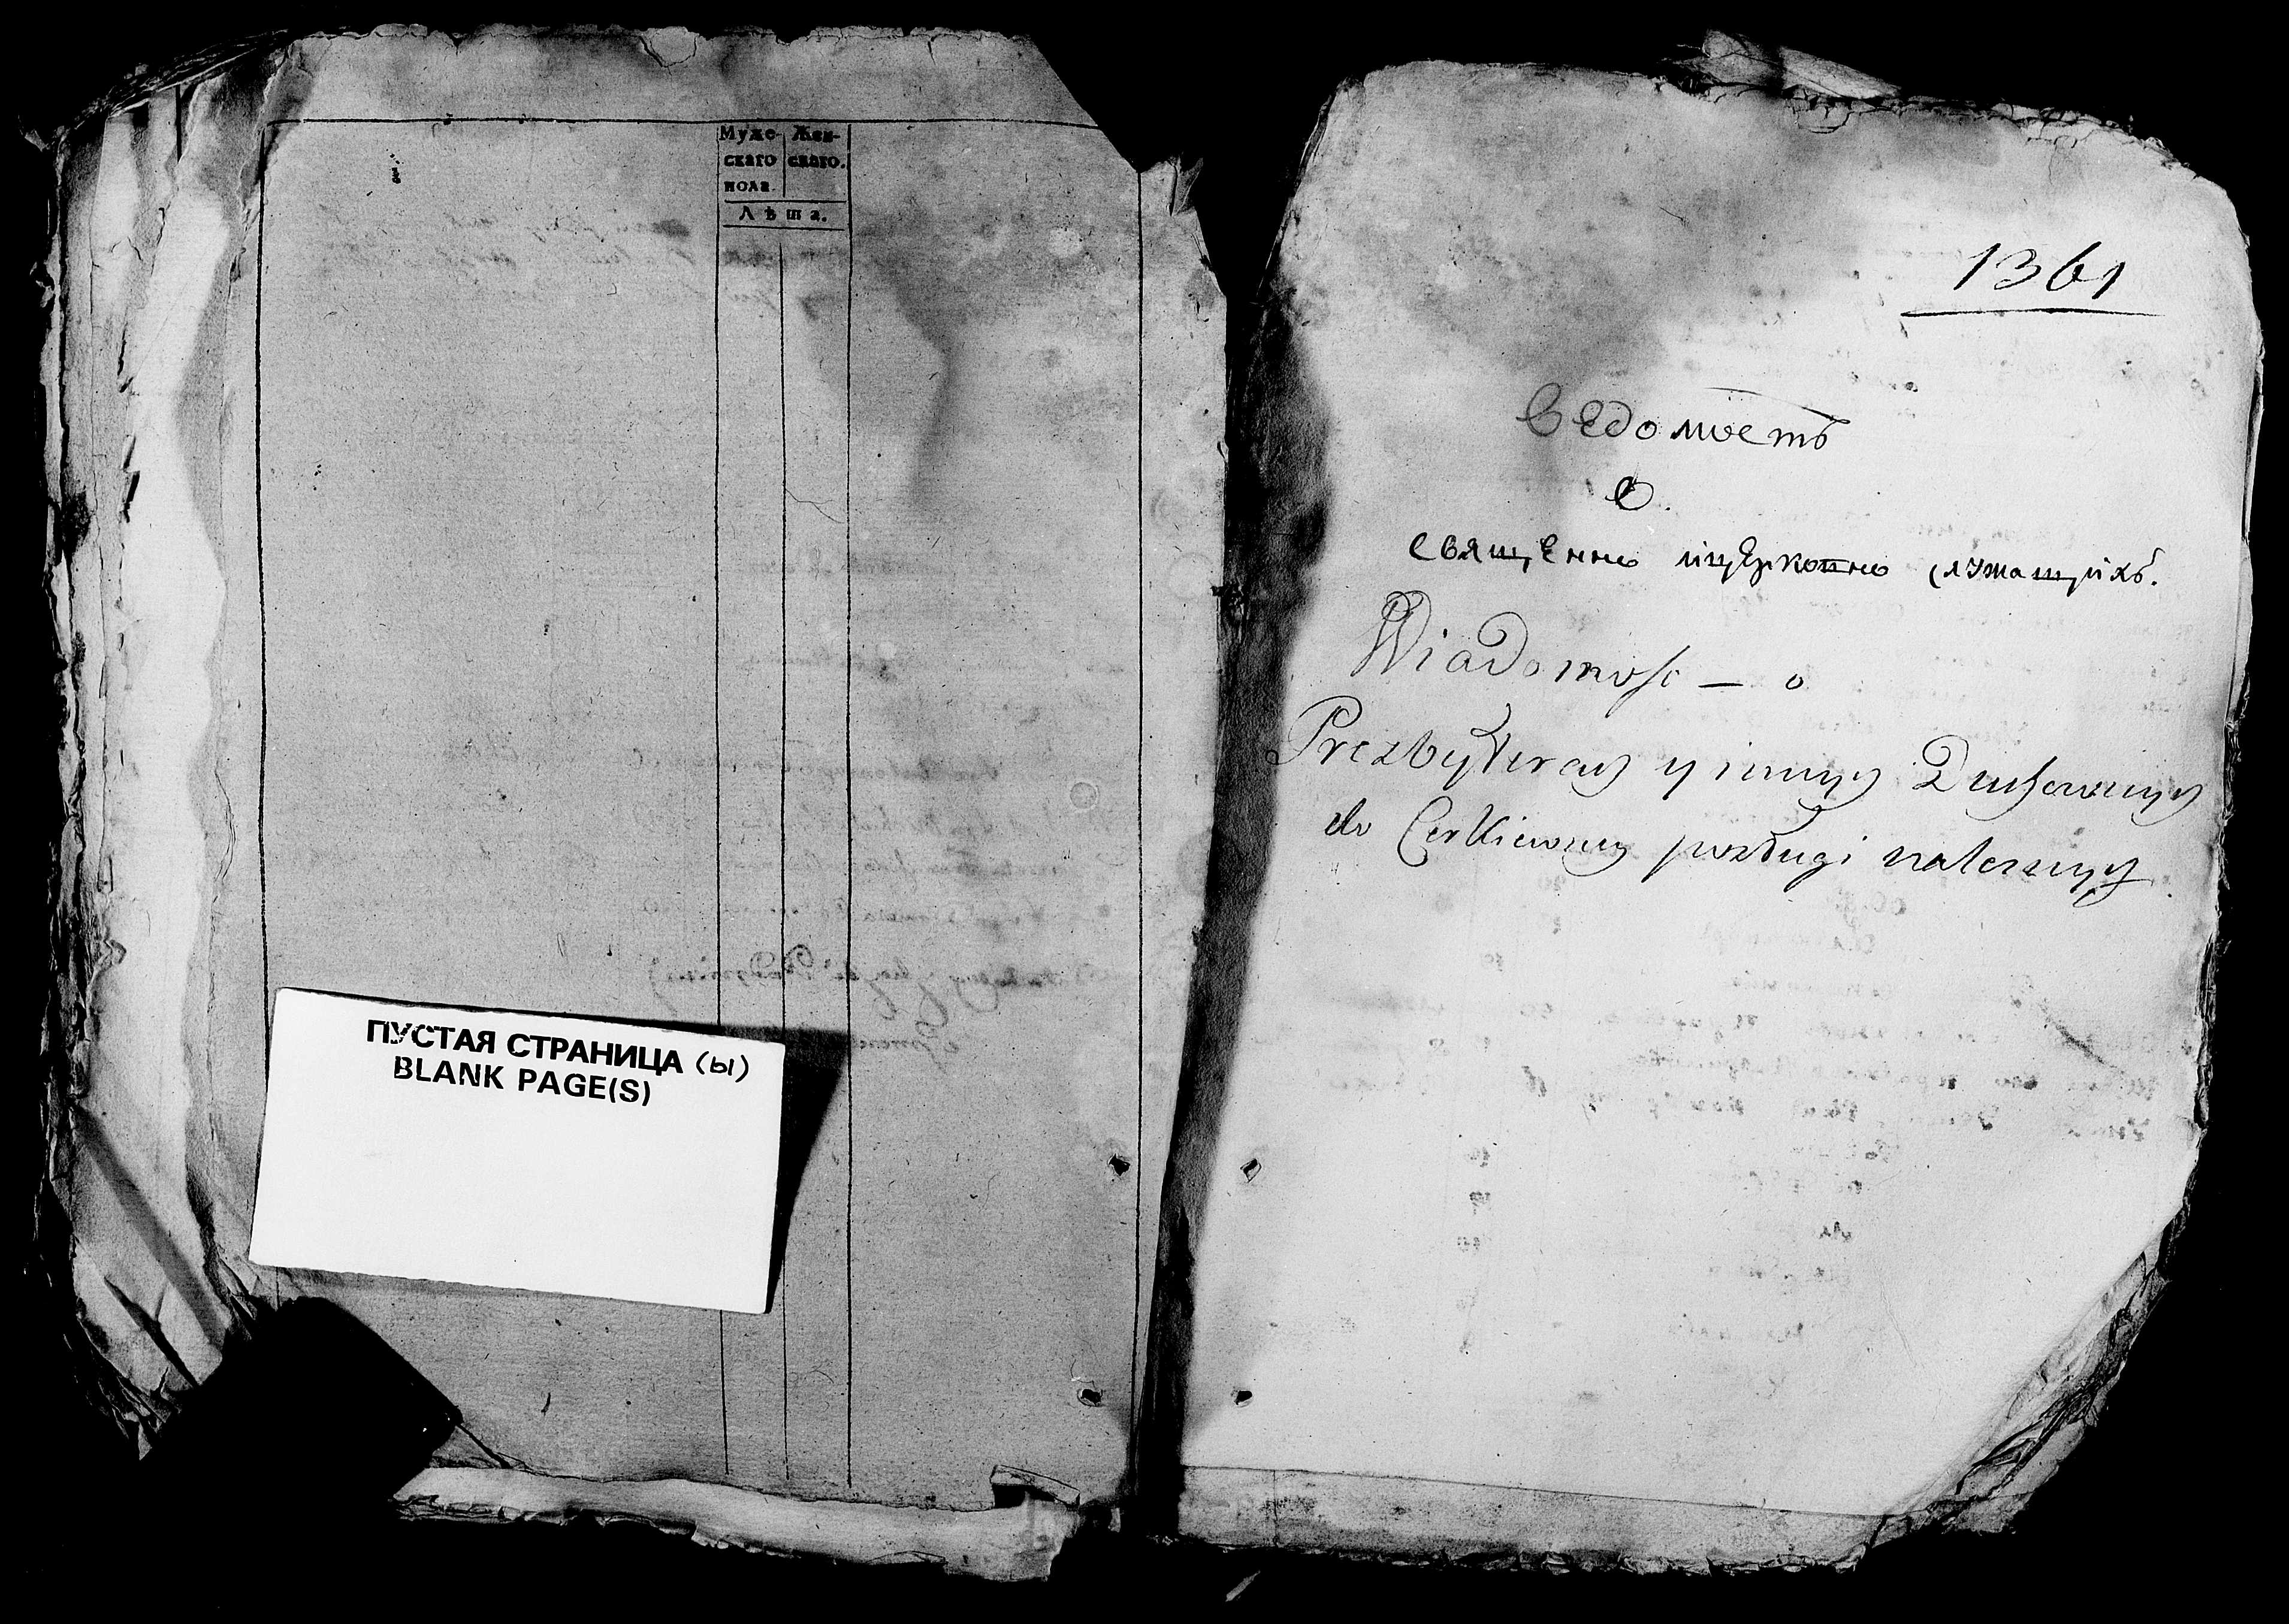 Муже- Жен-
скаго скаго.
пола.
Лѣта.
ПУСТАЯ СТРАНИЦА (ы)
BLANK PAGE(S)
1361
Ведомость
О.
священно ицерковно служащихъ.
Wiadomosc — o
Prezbyterach y innych Duchownych
do Cerkiewney posługi należnych